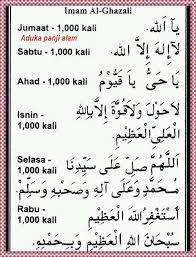 Imam Al-Ghazali
Jumaat - 1,000 kali يَا اَللّٰه.
Aduka panji alam
Sabtu - 1,000 kali لَآ إِلٰهَ إِلَّا اللّٰه.
Ahad - 1,000 kali يَا حَيُّ يَا قَيُّوْمُ
Isnin - لَاحَوْلَ وَلَاقُوَّةَ إِلَّا بِاللّٰهِ
1,000 kali الْعَلِيِّ الْعَظِيْمِ.
Selasa - اَللّٰهُمَّ صَلِّ عَلَى سَيِّدِنَا
1,000 kali مُحَمَّدٍ وَعَلَى آلِهِ وَصَحْبِهِ وَسَلِّمْ.
Rabu - أَسْتَغْفِرُ اللّٰهَ الْعَظِيْمِ
1,000 kali
سُبْحَانَ اللّٰهِ الْعَظِيْمِ وَبِحَمْدِهِ.